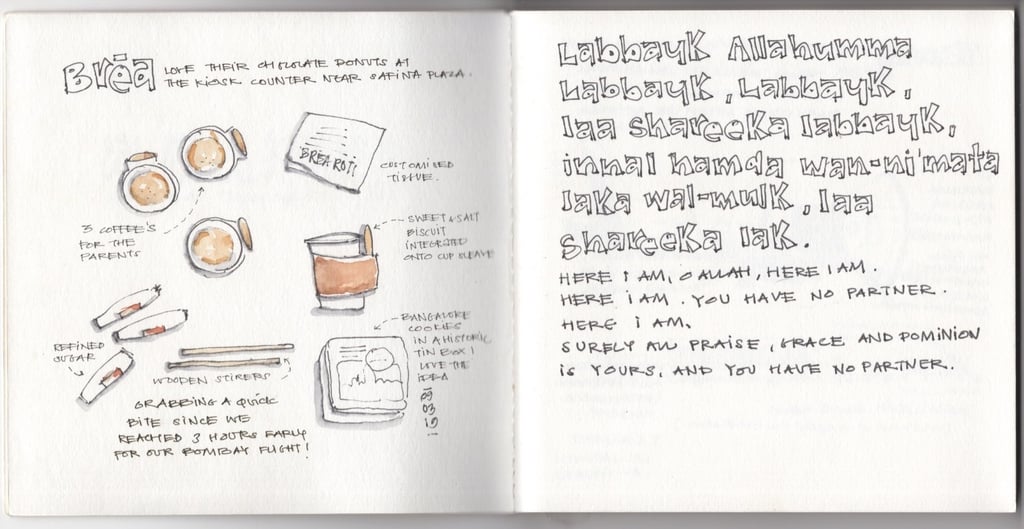 Bréa
LOVE THEIR CHOCOLATE DONUTS AT
THE KIOSK COUNTER NEAR SAFINA PLAZA.
BREA ROTI
CUSTOMISED
TISSUE.
3 COFFEE'S
FOR THE
PARENTS
SWEET & SALT
BISCUIT
INTEGRATED
ONTO CUP SLEAVE
REFINED
SUGAR
WOODEN STIRERS
BANGALORE
COOKIES
IN A HISTORIC
TIN BOX I
LOVE THE
IDEA
09
03
GRABBING A QUICK
BITE SINCE WE
REACHED 3 HOURS EARLY
FOR OUR BOMBAY FLIGHT!
Labbayk Allahumma
Labbayk, Labbayk,
laa shareeka labbayk,
innal hamda wan-ni'mata
laka wal-mulk, laa
shareeka lak.
HERE I AM, O ALLAH, HERE I AM.
HERE I AM. YOU HAVE NO PARTNER.
HERE I AM.
SURELY ALL PRAISE, GRACE AND DOMINION
IS YOURS, AND YOU HAVE NO PARTNER.